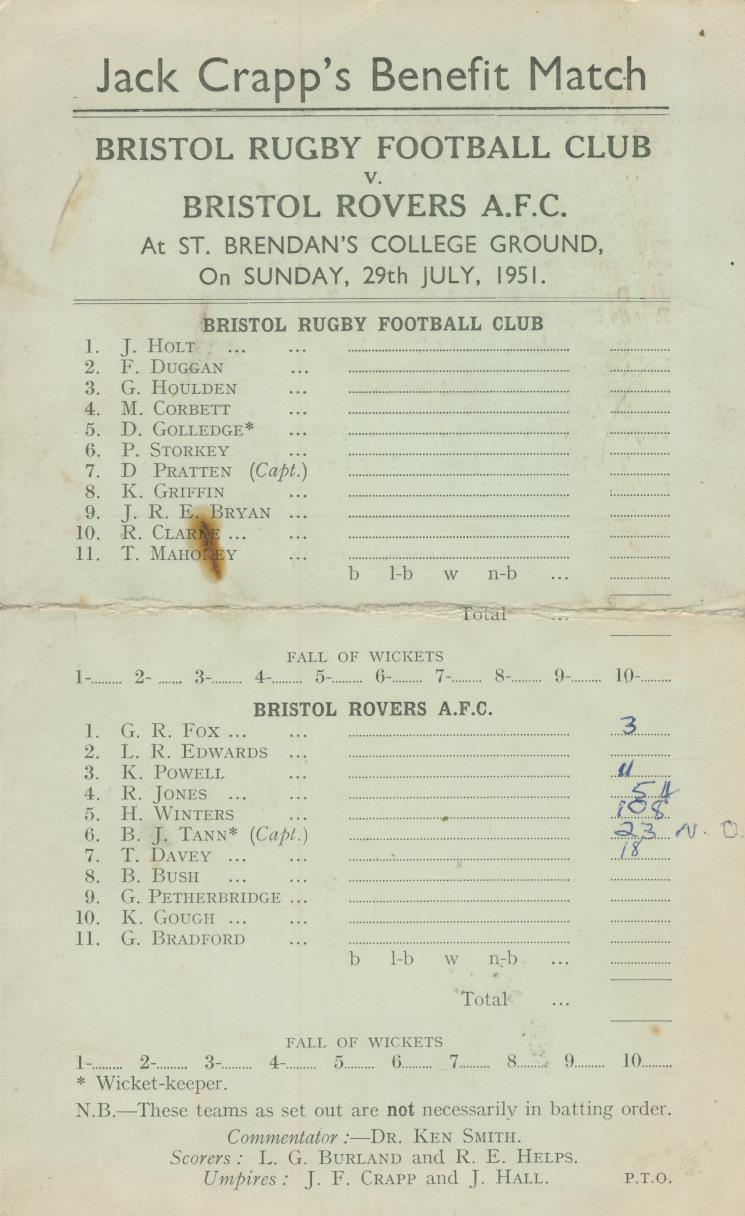 Jack Crapp's Benefit Match
BRISTOL RUGBY FOOTBALL CLUB
v.
BRISTOL ROVERS A.F.C.
At ST. BRENDAN'S COLLEGE GROUND,
On SUNDAY, 29th JULY, 1951.
BRISTOL RUGBY FOOTBALL CLUB
1. J. HOLT ... ...
2. F. DUGGAN ...
3. G. HOULDEN ...
4. M. CORBETT ...
5. D. GOLLEDGE* ...
6. P. STORKEY ...
7. D PRATTEN (Capt.)
8. K. GRIFFIN ...
9. J. R. E. BRYAN ...
10. R. CLARKE ... ...
11. T. MAHONEY ...
b l-b w n-b ...
Total ...
FALL OF WICKETS
1-......... 2- ....... 3-......... 4-......... 5-......... 6-......... 7-......... 8-......... 9-......... 10-.........
BRISTOL ROVERS A.F.C.
1. G. R. FOX ... ... 3
2. L. R. EDWARDS ...
3. K. POWELL ... 11
4. R. JONES ... ... 54
5. H. WINTERS ... 108
6. B. J. TANN* (Capt.) 23 N. O.
7. T. DAVEY ... ... 18
8. B. BUSH ... ...
9. G. PETHERBRIDGE ...
10. K. GOUGH ... ...
11. G. BRADFORD ...
b l-b w n-b ...
Total ...
FALL OF WICKETS
1-......... 2-......... 3-......... 4-......... 5......... 6......... 7......... 8......... 9......... 10.........
* Wicket-keeper.
N.B.—These teams as set out are not necessarily in batting order.
Commentator :—DR. KEN SMITH.
Scorers : L. G. BURLAND and R. E. HELPS.
Umpires : J. F. CRAPP and J. HALL. P.T.O.